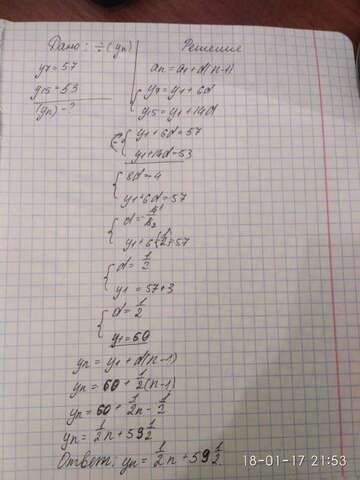 Дано: ÷(yn) Решение
y7 = 57 an = a1 + d(n-1)
y15 = 53 { y7 = y1 + 6d
(yn) - ? y15 = y1 + 14d
{ y1 + 6d = 57
y1 + 14d = 53
{ 8d = -4
y1 + 6d = 57
{ d =
y1 + 6 57
{ d =
y1 = 57 + 3
{ d = 1/2
y1 = 60
yn = y1 + d(n-1)
yn = 60 + 1/2(n-1)
yn = 60 + 1/2n - 1/2
yn = 1/2n + 59 1/2
Ответ: yn = 1/2n + 59 1/2.
18-01-17 21:53